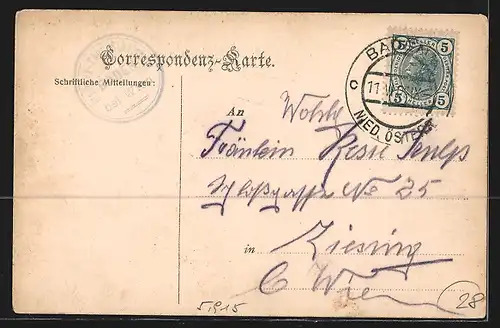 Correspondenz-Karte.
Schriftliche Mitteilungen:
5 5
5 5
BADEN
C
11
NIED. ÖSTERR
An
Wohlg
Fräulein Resie
Schloßgasse No 25
in
Liesing
b Wien
28